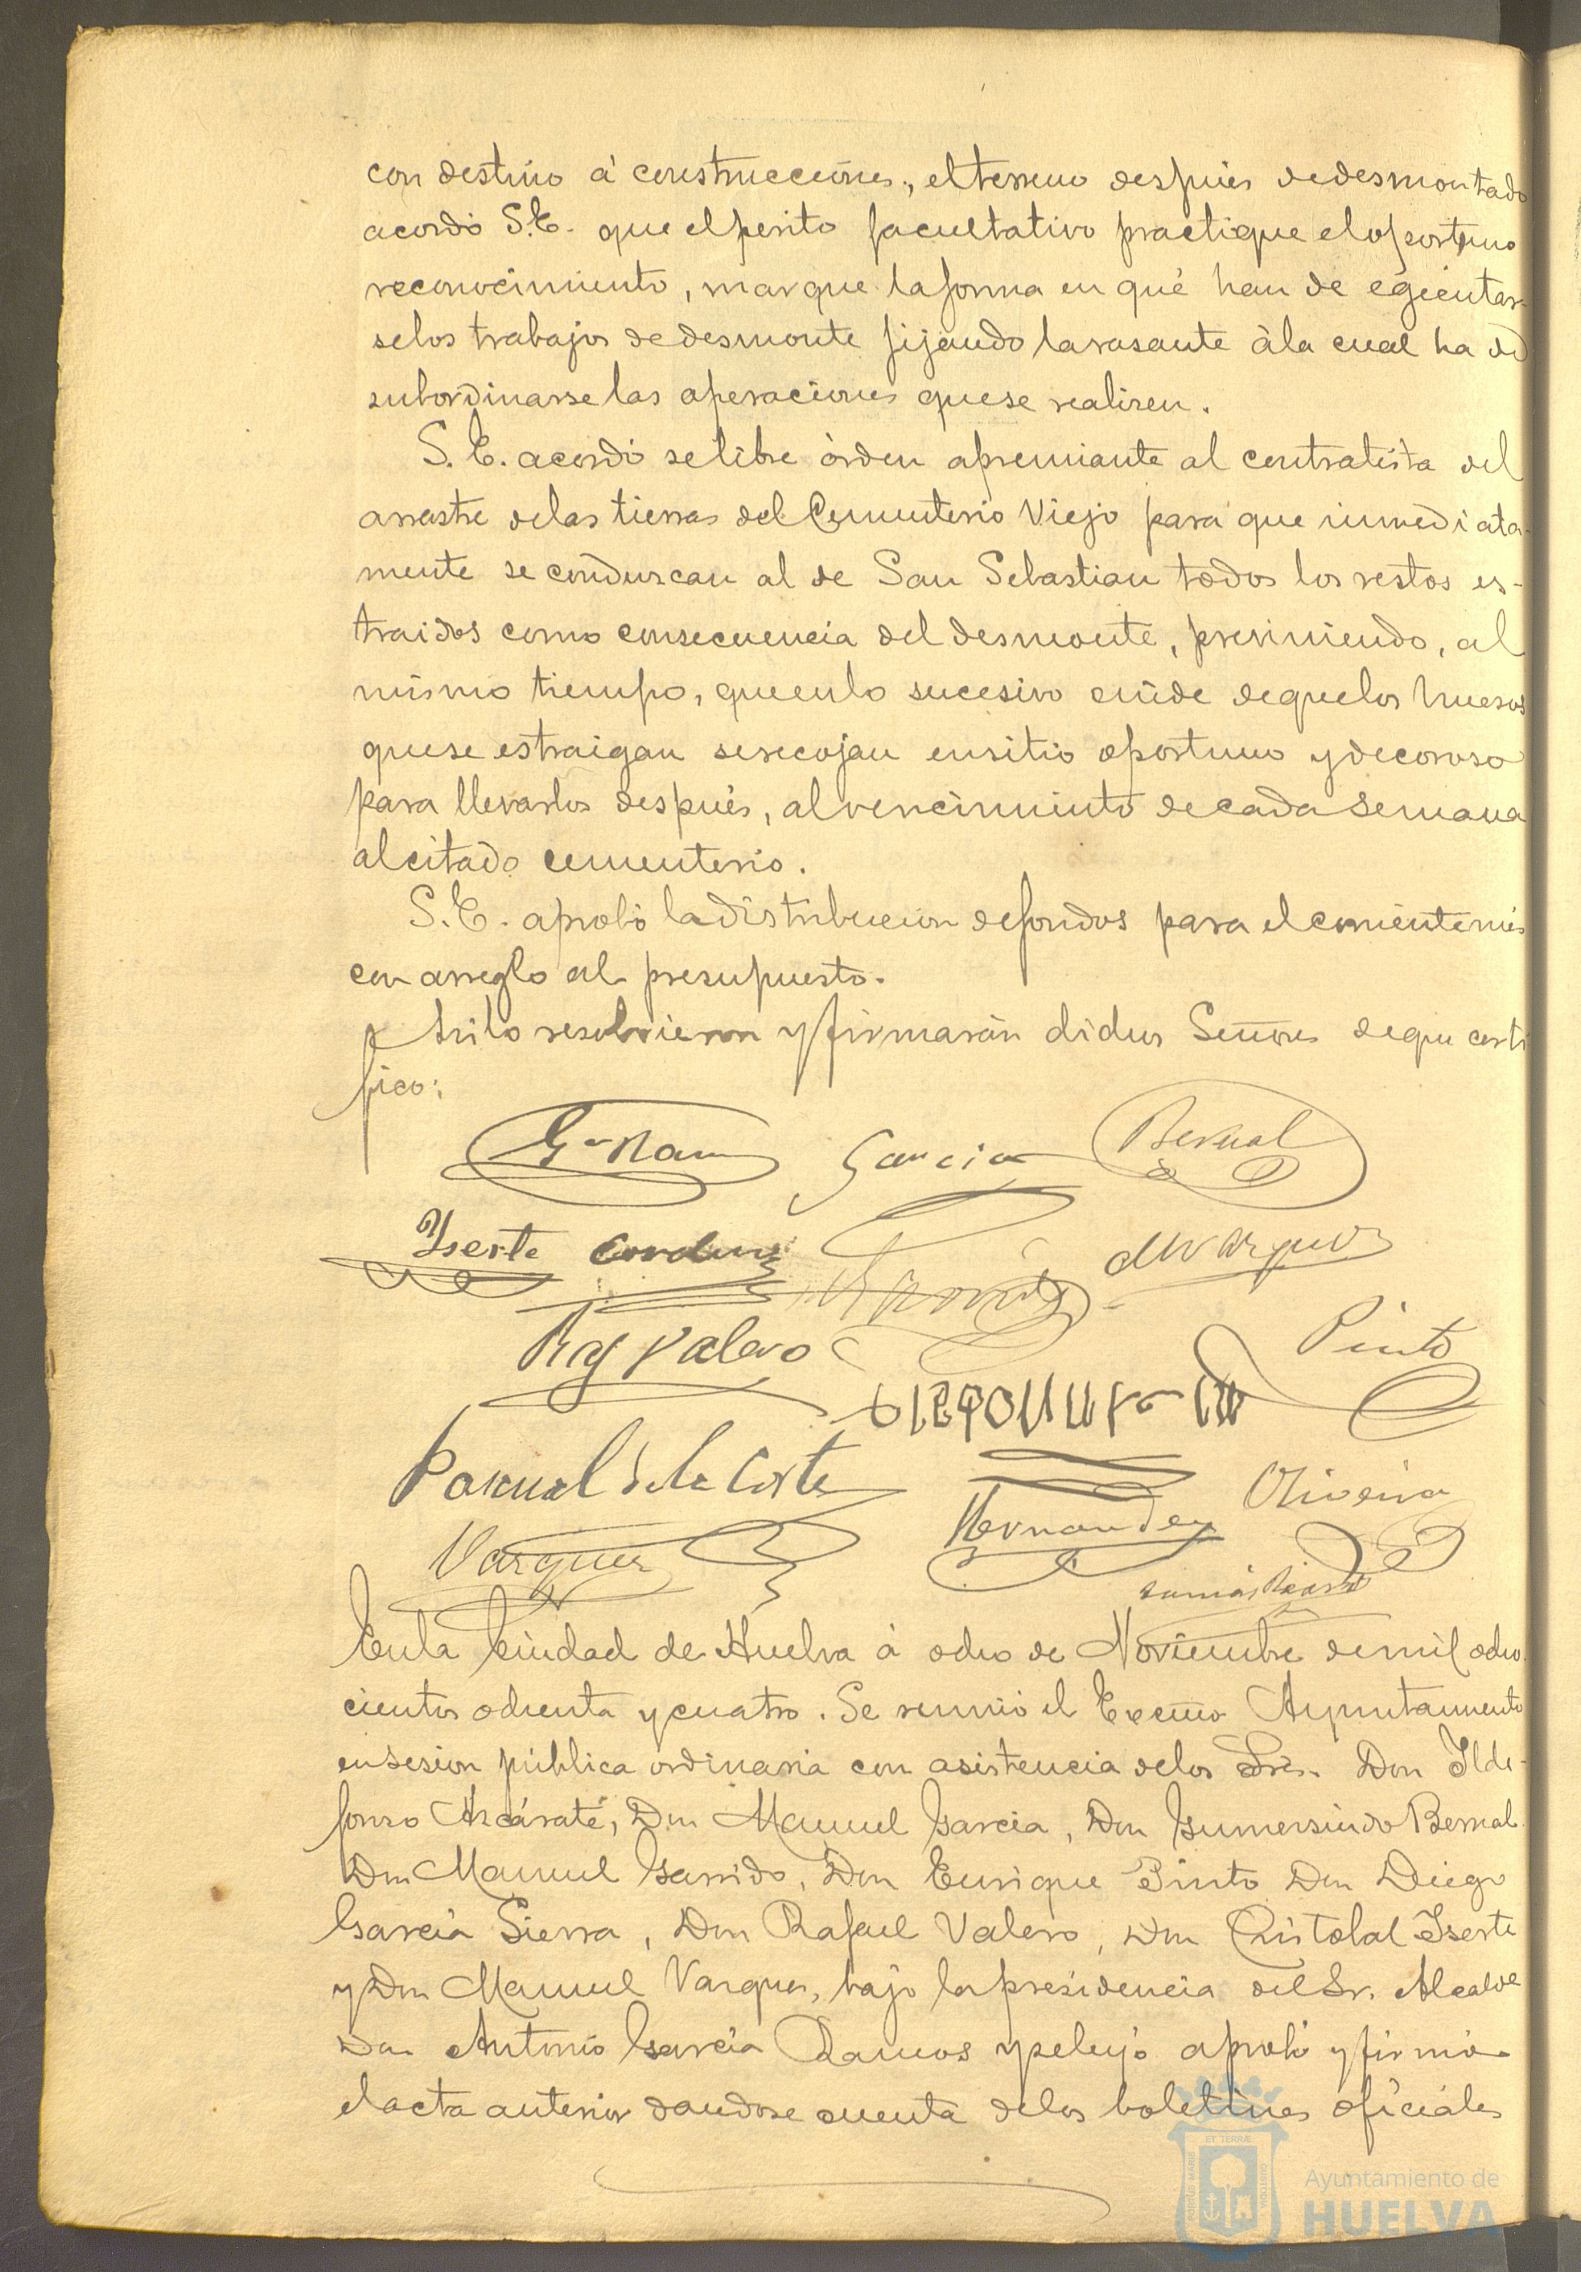 con destino á construcciones, el terreno después de desmontado
acordó S.E. que el perito facultativo practique el oportuno
reconocimiento, marque la forma en qué han de egecutar-
se los trabajos de desmonte fijando la rasante á la cual ha de
subordinarse las operaciones que se realisen.
S.E. acordó se libre órden apremiante al contratista del
arrastre de las tierras del Cementerio Viejo para que inmediata-
mente se conduzcan al de San Sebastian todos los restos es-
traidos como consecuencia del desmonte, previniendo, al
mismo tiempo, que en lo sucesivo cuide de que los huesos
que se estraigan se recojan en sitio oportuno y decoroso
para llevarlos después, al vencimiento de cada semana
al citado cementerio.
S.E. aprobó la distribucion de fondos para el corriente mes
con arreglo al presupuesto.
Asi lo resolvieron y firmarán dichos Señores de que certi
fico:
Ga Ram Garcia Bernal
Yserte Cordero Marquez
Raf Valero Pinto
Pascual de la Corte
Hernandez Oliveira
Vazquez
En la Ciudad de Huelva á ocho de Noviembre de mil ocho-
cientos ochenta y cuatro. Se reunió el Excmo Ayuntamiento
en sesion pública ordinaria con asistencia de los Sres. Don Ilde-
fonso Azcárate, Don Manuel Garcia, Don Gumersindo Bernal
Don Manuel Garrido, Don Enrique Pinto Don Diego
Garcia Sierra, Don Rafael Valero, Don Cristobal Iserte
y Don Manuel Vazquez, bajo la presidencia del Sr. Alcalde
Don Antonio Garcia Ramos y se leyó aprobó y firmó
el acta anterior dandose cuenta de los boletines oficiales
Ayuntamiento de
HUELVA